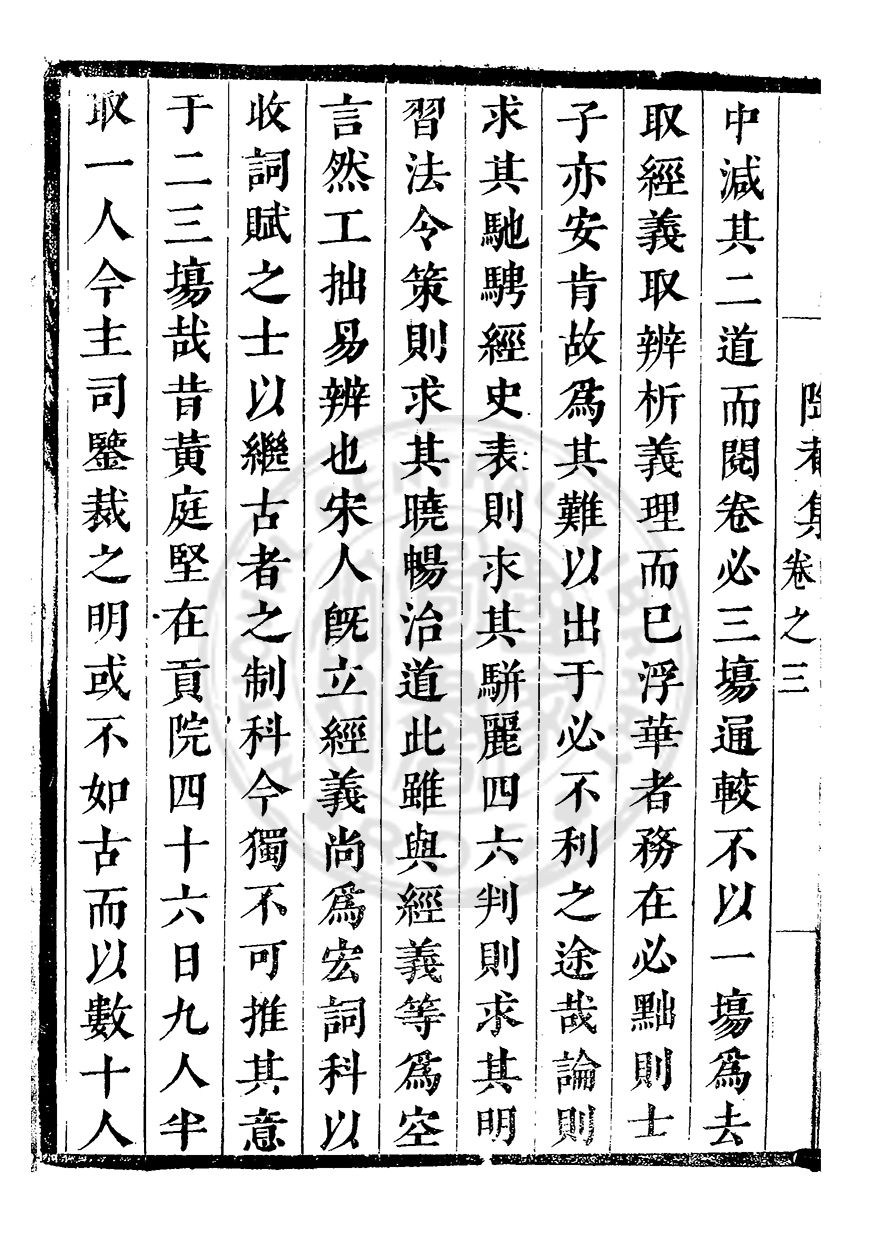 集卷之三
中減其二道而閱卷必三塲通較不以一塲爲去
取經義取辨析義理而已浮華者務在必黜則士
子亦安肯故爲其難以出于必不利之途哉論則
求其馳騁經史表則求其騈麗四六判則求其明
習法令策則求其曉暢治道此雖與經義等爲空
言然工拙易辨也宋人旣立經義尚爲宏詞科以
收詞賦之士以繼古者之制科今獨不可推其意
于二三塲哉昔黃庭堅在貢院四十六日九人半
取一人今主司鑒裁之明或不如古而以數十人